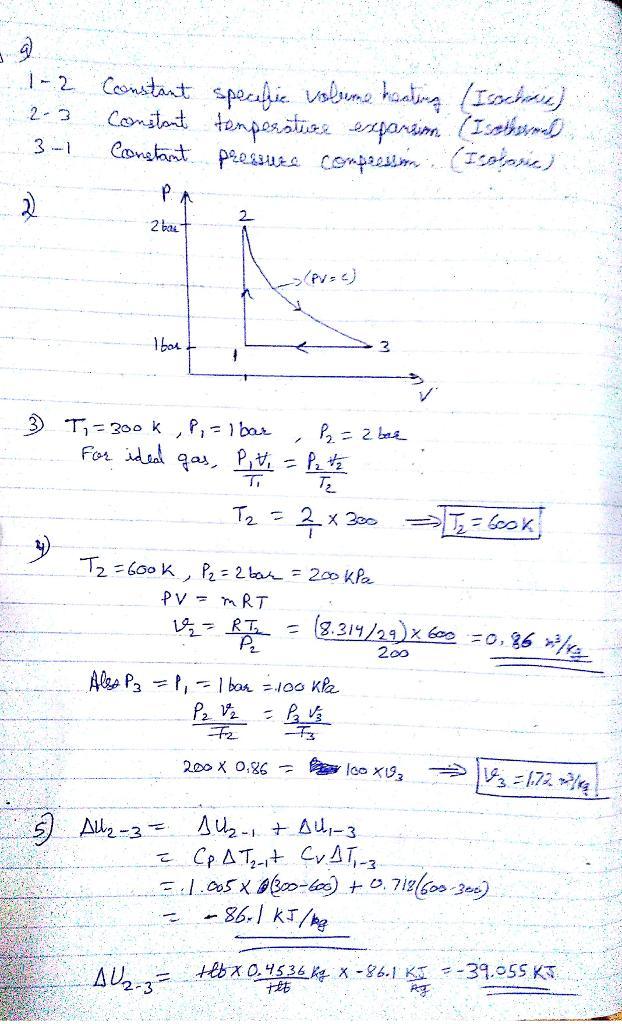 1)
1-2 Constant specific volume heating (Isochoric)
2-3 Constant temperature expansion (Isothermal)
3-1 Constant pressure compression. (Isobaric)
2)
P
2 bar
2
(PV = C)
1 bar
1
3
V
3) T₁ = 300 K, P₁ = 1 bar, P₂ = 2 bar
For ideal gas, P₁V₁/T₁ = P₂V₂/T₂
T₂ = 2/1 × 300 ⇒ T₂ = 600 K
4)
T₂ = 600 K, P₂ = 2 bar = 200 KPa
PV = mRT
V₂ = RT₂/P₂ = (8.314/29) × 600/200 = 0.86 m³/kg
Also P₃ = P₁ = 1 bar = 100 KPa
P₂V₂/T₂ = P₃V₃/T₃
200 × 0.86 = 100 × V₃ ⇒ V₃ = 1.72 m³/kg
5) ΔU₂₋₃ = ΔU₂₋₁ + ΔU₁₋₃
= CpΔT₂₋₁ + CvΔT₁₋₃
= 1.005 × (300-600) + 0.718(600-300)
= -86.1 KJ/kg
ΔU₂₋₃ = 1lb × 0.4536 kg/1lb × -86.1 KJ/kg = -39.055 KJ